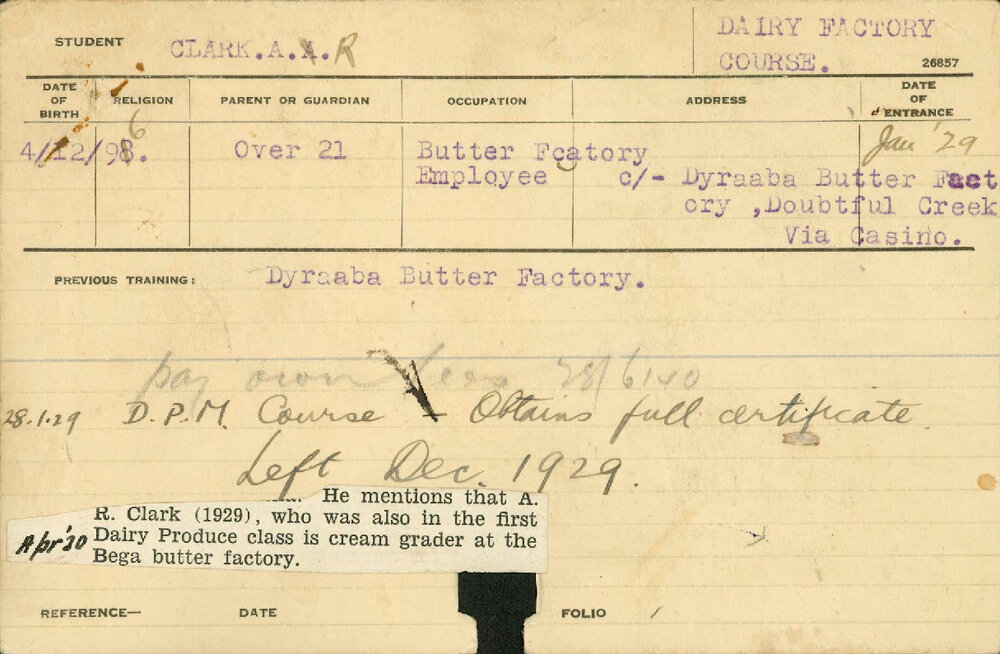 STUDENT CLARK.A.A.R DAIRY FACTORY
COURSE. 26857
DATE OF BIRTH RELIGION PARENT OR GUARDIAN OCCUPATION ADDRESS DATE OF ENTRANCE
6
4/12/98. Over 21 Butter Fcatory Jan '29
Employee c/- Dyraaba Butter Fact
ory ,Doubtful Creek
Via Casino.
PREVIOUS TRAINING: Dyraaba Butter Factory.
pay own fees 28/6/40
28.1.29 D.P.M. Course Obtains full certificate
Left Dec. 1929.
He mentions that A.
R. Clark (1929), who was also in the first
Apr '30 Dairy Produce class is cream grader at the
Bega butter factory.
REFERENCE— DATE FOLIO